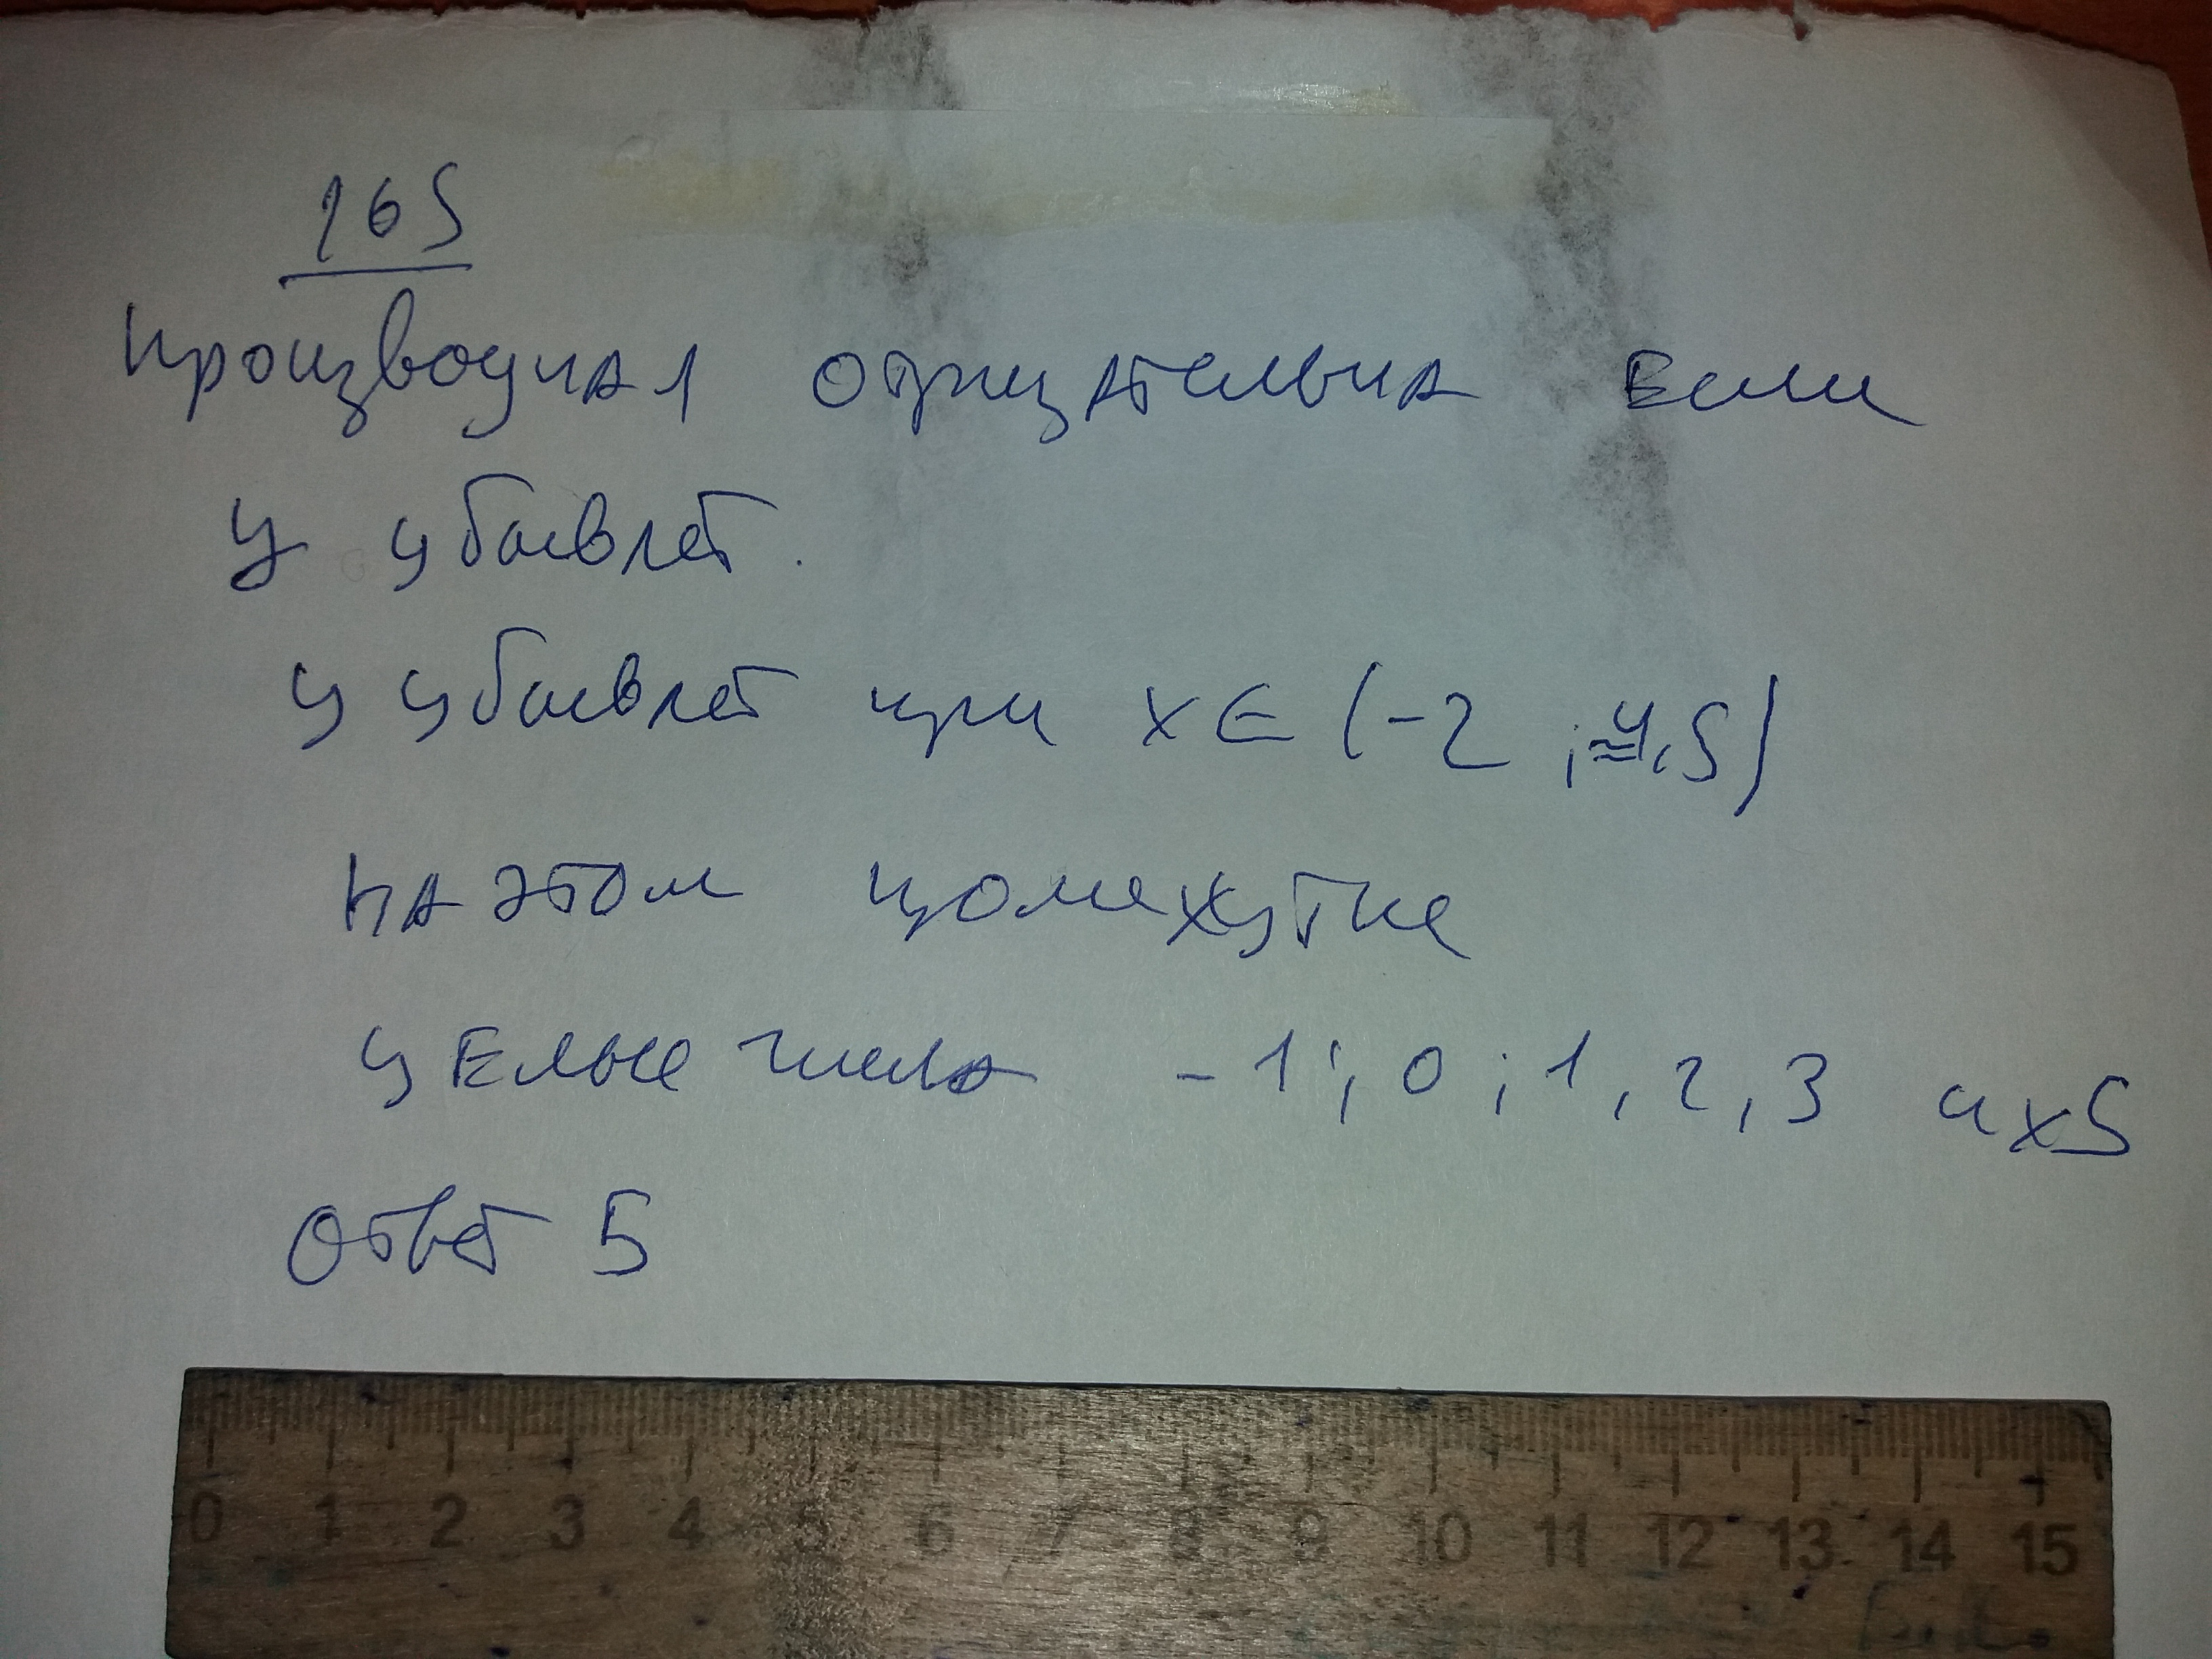 165
Производная отрицательна Если
у убывает.
у убывает при x ∈ (-2 ; ≈4,5)
на этом промежутке
целые числа -1; 0; 1, 2, 3 их 5
Ответ 5
0 1 2 3 4 5 6 7 8 9 10 11 12 13 14 15